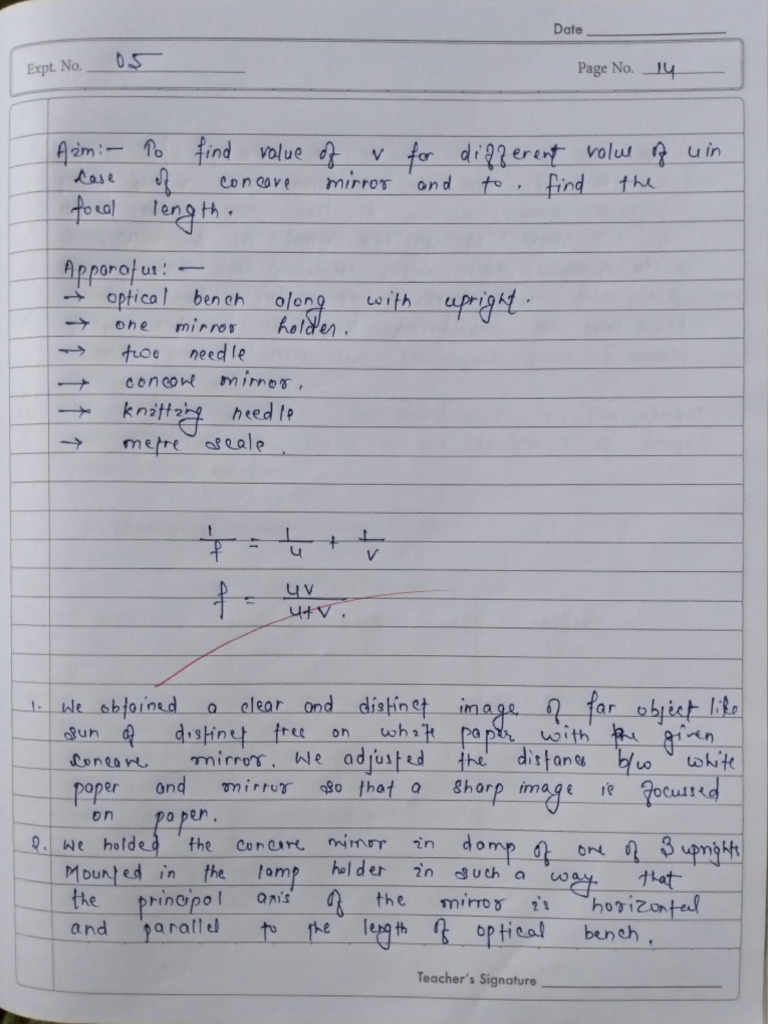 Date
Expt. No. 05
Page No. 14
Aim:- To find value of v for different value of u in
case of concave mirror and to . find the
focal length.
Apparatus: -
→ optical bench along with upright.
→ one mirror holder.
→ two needle
→ concave mirror,
→ knitting needle
→ metre scale.
1/f = 1/u + 1/v
f = uv/u+v.
1. We obtained a clear and distinct image of far object like
sun of distinct tree on white paper with the given
concave mirror. We adjusted the distance b/w white
paper and mirror so that a sharp image is focussed
on paper.
2. We holded the concave mirror in damp of one of 3 uprights
Mounted in the lamp holder in such a way that
the principal axis of the mirror is horizontal
and parallel to the length of optical bench.
Teacher's Signature